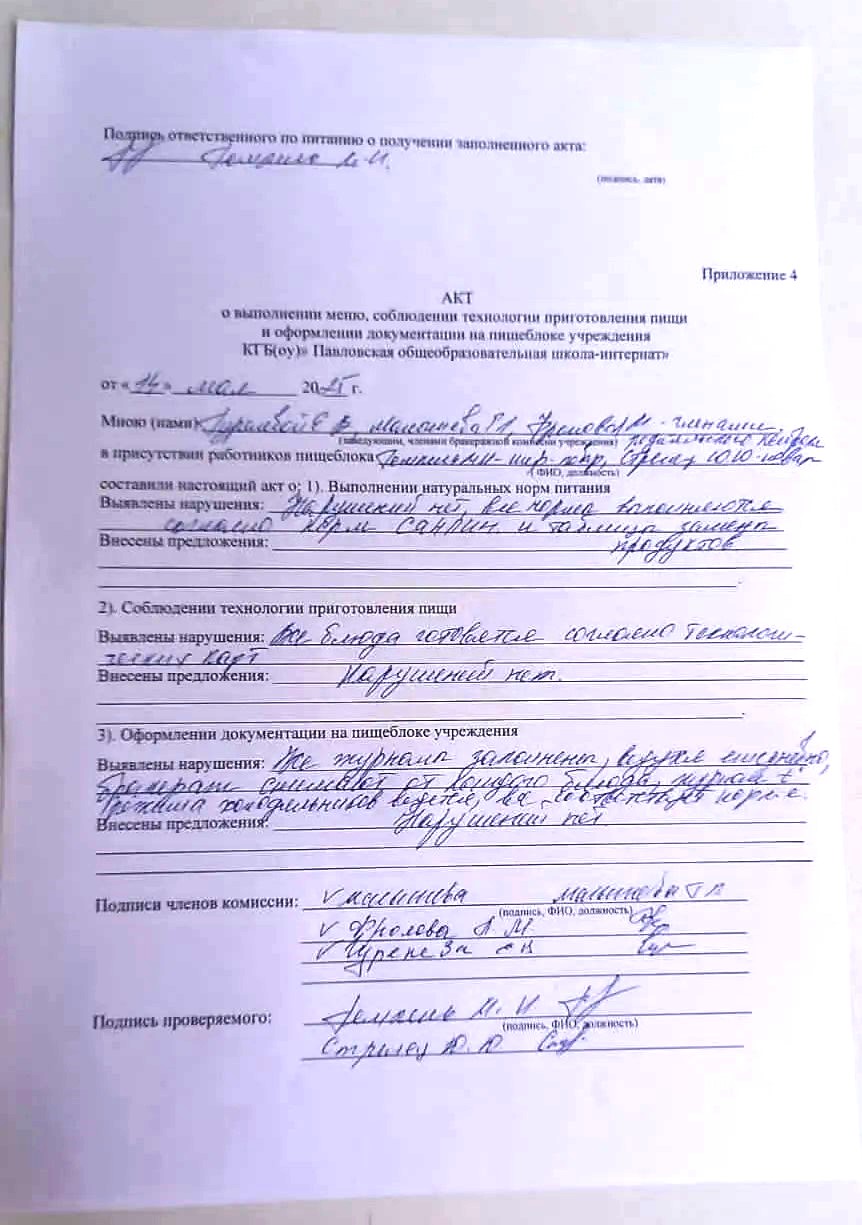 Подпись ответственного по питанию о получении заполненного акта:
М. И.
(подпись, дата)
Приложение 4
АКТ
о выполнении меню, соблюдении технологии приготовления пищи
и оформлении документации на пищеблоке учреждения
КГБ(оу)» Павловская общеобразовательная школа-интернат»
от «14» мая 2025 г.
Мною (нами) Фролова М - членами
(заведующим, членами бракеражной комиссии учреждения)
в присутствии работников пищеблока Стрелец Ю.Ю - повар
(ФИО, должность)
составили настоящий акт о: 1). Выполнении натуральных норм питания
Выявлены нарушения: Нарушений нет, все нормы выполняются
согласно норм СанПин и таблица замены
Внесены предложения: продуктов
2). Соблюдении технологии приготовления пищи
Выявлены нарушения: Все блюда готовятся согласно технологи-
ческих карт
Внесены предложения: Нарушений нет.
3). Оформлении документации на пищеблоке учреждения
Выявлены нарушения: Все журналы заполнены, ведутся
снимают от каждого блюда, журнал t
режима холодильников ведется, норме.
Внесены предложения: Нарушений нет
Подписи членов комиссии: V Малышева Малышева Т
(подпись, ФИО, должность)
V Фролова Л. М.
V
Подпись проверяемого: М. И.
(подпись, ФИО, должность)
Стрелец Ю. Ю